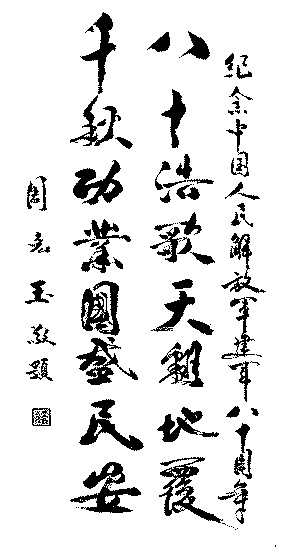 纪念中国人民解放军建军八十周年
八十浩歌天翻地覆
千秋功業國盛民安
周克玉敬题